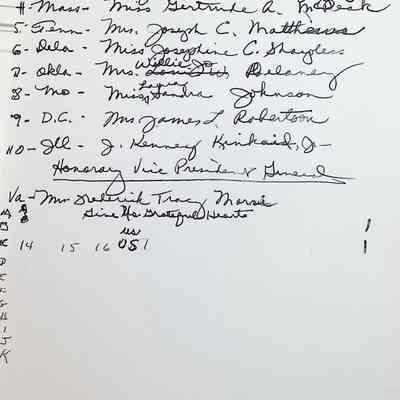 4- Mass- Miss Gertrude A. McPeak
5- Tenn- Mrs. Joseph C. Matthews
6- Dela- Miss Josephine C. Shaypless
Willie Jo
7- Okla- Mrs. Delaney
Laura
8- Mo- Miss Sandra Johnson
9- D.C. Mrs James L Robertson
10- Ill- J. Kenney Kinkaid, Jr-
Honorary Vice President General
Va- Mrs Frederick Tracy Morse
Give Us Grateful Hearts
us
14 15 16 US 1
D
E
F
G
H
I
J
K